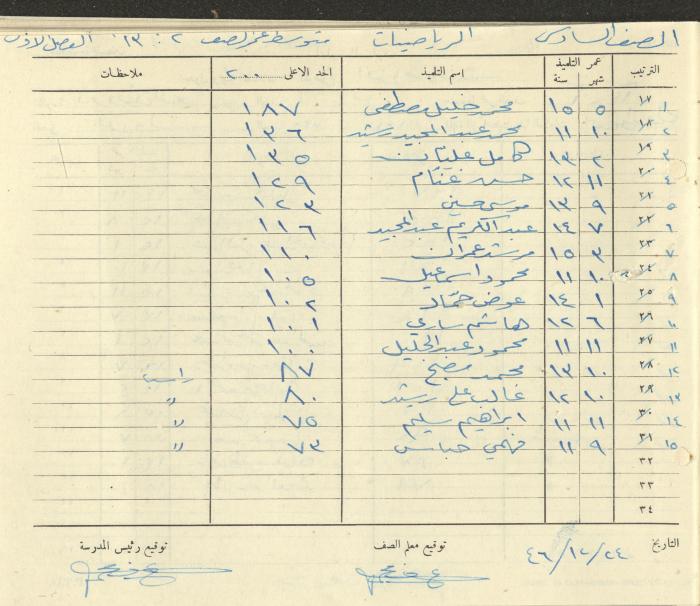 الصف السادس الرياضيات متوسط عمر الصف ٢ : ١٣ الفصل الاول
الترتيب عمر التلميذ شهر سنة اسم التلميذ الحد الاعلى ٢٠٠ ملاحظات
١٧ ١ ٥ ١٥ محمد خليل مصطفى ١٨٧
١٨ ٢ ١٠ ١١ محمد عبد المجيد رشيد ١٣٦
١٩ ٣ ٢ ١٣ كامل عليان ١٣٥
٢٠ ٤ ١١ ١٢ حسن غنام ١٢٩
٢١ ٥ ٩ ١٣ موسى حسين ١٢٣
٢٢ ٦ ٧ ١٤ عبد الكريم عبد المجيد ١١٦
٢٣ ٧ ٣ ١٥ مرشد عمران ١١٠
٢٤ ٨ ١٠ ١١ محمود اسماعيل ١٠٥
٢٥ ٩ ١ ١٤ عوض حمّاد ١٠٢
٢٦ ١٠ ٦ ١٢ هاشم ساري ١٠١
٢٧ ١١ ١١ ١١ محمود عبد الجليل ١٠٠
٢٨ ١٢ ١٠ ١٣ محمد مصلح ٨٧ راسب
٢٩ ١٣ ١٠ ١٢ غالب علي رشيد ٨٠ "
٣٠ ١٤ ١١ ١١ ابراهيم سليم ٧٥ "
٣١ ١٥ ٩ ١١ فهمي عباس ٧٣ "
٣٢
٣٣
٣٤
التاريخ ٤٦/١٢/٢٤ توقيع معلم الصف توقيع رئيس المدرسة